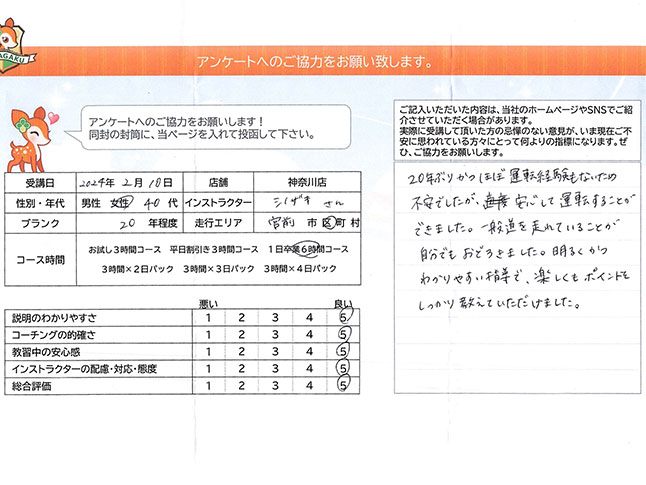 AGAKU
アンケートへのご協力をお願い致します。
アンケートへのご協力をお願いします!
同封の封筒に、当ページを入れて投函して下さい。
ご記入いただいた内容は、当社のホームページやSNSでご紹
介させていただく場合があります。
実際に受講して頂いた方の忌憚のない意見が、いま現在ご不
安に思われている方々にとって何よりの指標になります。ぜ
ひ、ご協力をお願いします。
受講日 2024年 2月 18日 店舗 神奈川店
性別・年代 男性 女性 40代 インストラクター シノザキ さん
ブランク 20 年程度 走行エリア 宮前 市 区 町 村
コース時間
お試し3時間コース 平日割引き3時間コース 1日卒業6時間コース
3時間×2日パック 3時間×3日パック 3時間×4日パック
悪い 良い
説明のわかりやすさ 1 2 3 4 5
コーチングの的確さ 1 2 3 4 5
教習中の安心感 1 2 3 4 5
インストラクターの配慮・対応・態度 1 2 3 4 5
総合評価 1 2 3 4 5
20年ぶりかつほぼ運転経験もないため
不安でしたが、安心して運転することが
できました。一般道を走れていることが
自分でもおどろきました。明るくかつ
わかりやすい指導で、楽しくもポイントを
しっかり教えていただけました。